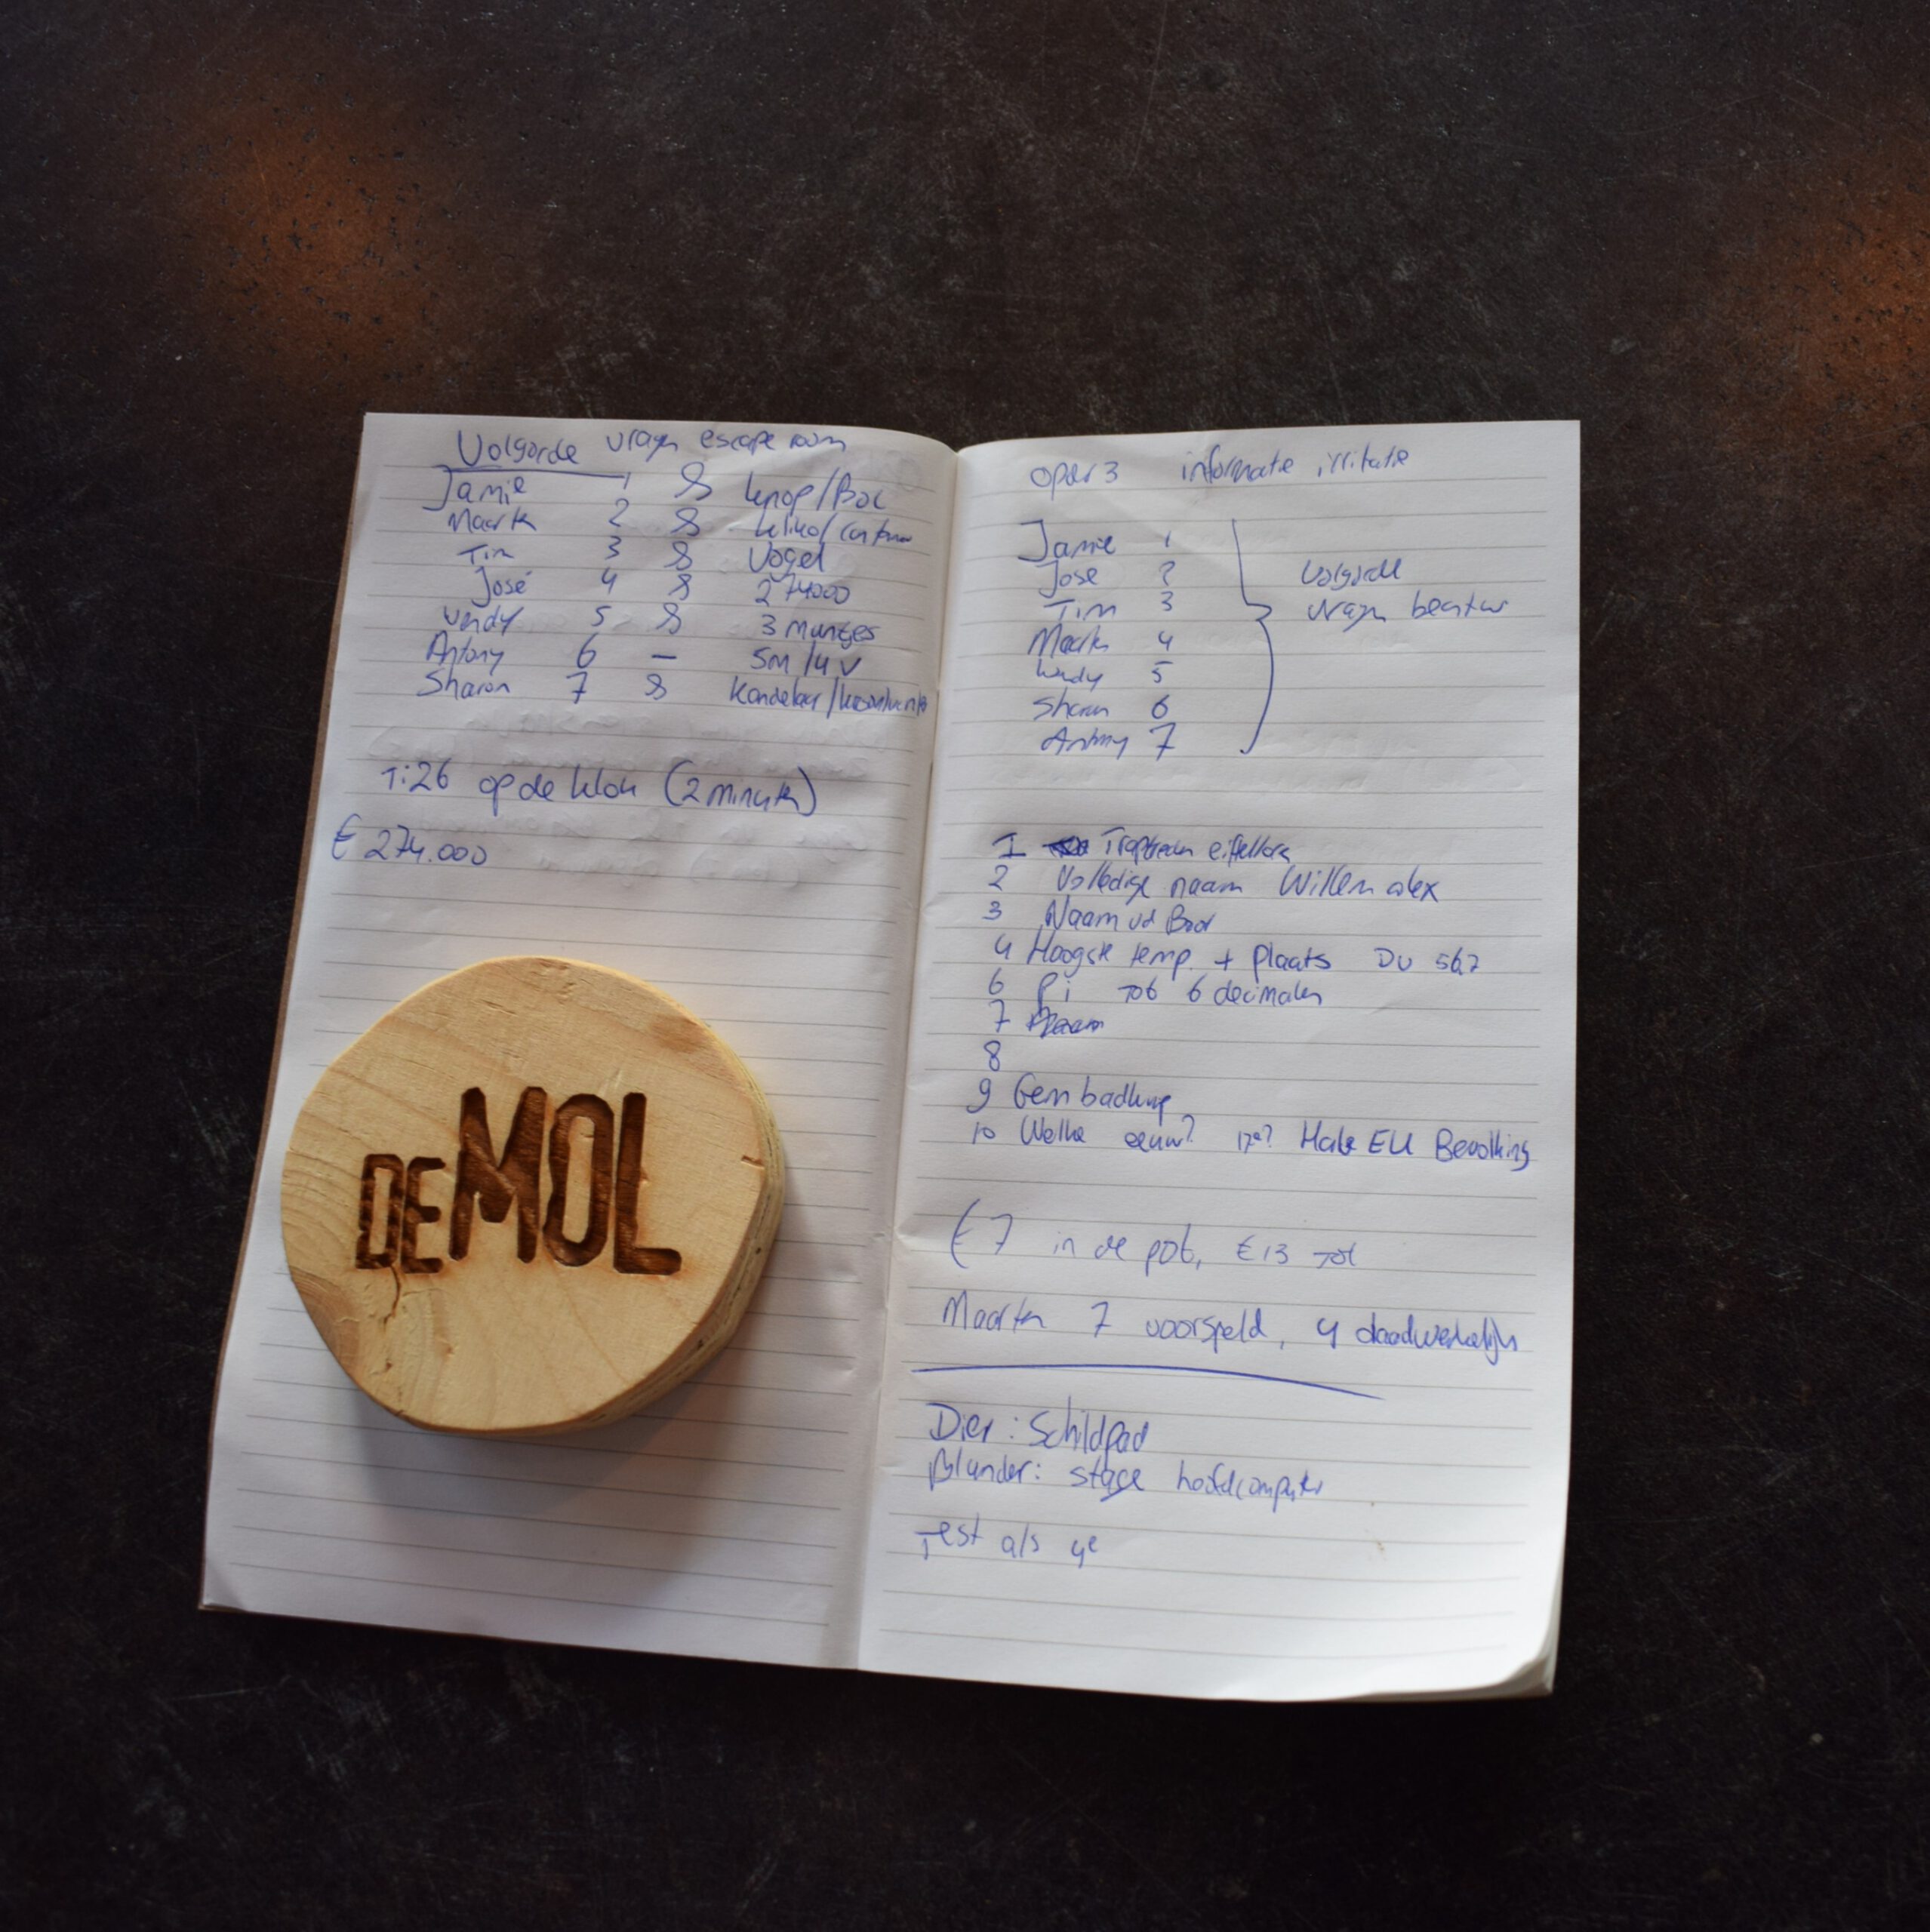 Volgorde vragen escape room
Jamie 1 8 knop/Box
Maarten 2 8 kliko/
Tim 3 8 Vogel
José 4 8 274000
Wendy 5 8 3 muntjes
Antony 6 – 5m/4v
Sharon 7 8 Kandelaar/
1:26 op de klok (2 minuten)
€ 274.000
DE MOL
informatie irritatie
Jamie 1
José 2
Tim 3
Maarten 4
Wendy 5
Sharon 6
Antony 7
Volgorde
vragen
1 Traptreden eiffeltoren
2 Volledige naam Willem alex
3 Naam vd Bar
4 Hoogste temp. + plaats DV 56,7
6 Pi tot 6 decimalen
7 Naam
8
9 Gem
10 Welke eeuw? 17e? Halve EU Bevolking
€7 in de pot, €13 tot
Maarten 7 voorspeld, 4 daadwerkelijk
Dier: Schildpad
Blunder: stage hoofdcomputer
Test als 4e